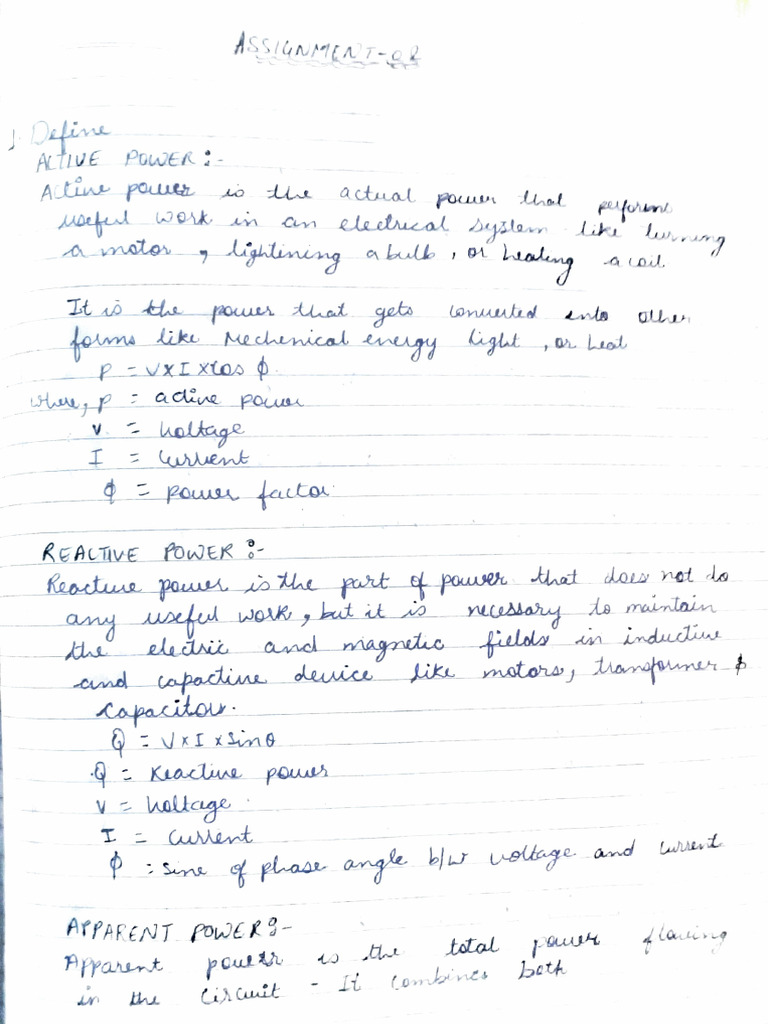 ASSIGNMENT-02
1. Define
ACTIVE POWER :-
Active power is the actual power that performs
useful work in an electrical system like turning
a motor, lightening a bulb, or heating a coil
It is the power that gets converted into other
forms like Mechenical energy light, or heat
P = V×I×cos ϕ.
where, p = active power
V = Voltage
I = Current
ϕ = power factor
REACTIVE POWER :-
Reactive power is the part of power that does not do
any useful work, but it is necessary to maintain
the electric and magnetic fields in inductive
and capactive device like motors, transformer &
capacitor.
Q = V×I×sinθ
Q = Reactive power
V = Voltage
I = Current
ϕ = Sine of phase angle b/w voltage and current
APPARENT POWER :-
Apparent power is the total power flowing
in the circuit - It combines both